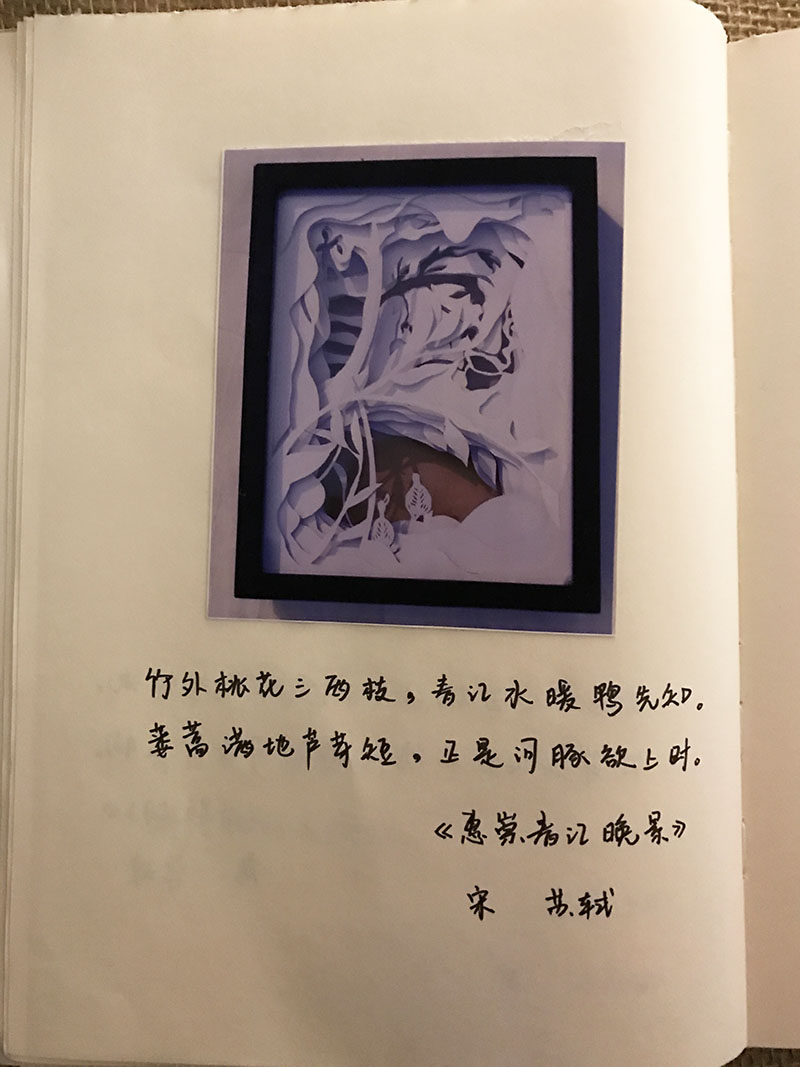 竹外桃花三两枝，春江水暖鸭先知。
蒌蒿满地芦芽短，正是河豚欲上时。
《惠崇春江晚景》
宋 苏轼